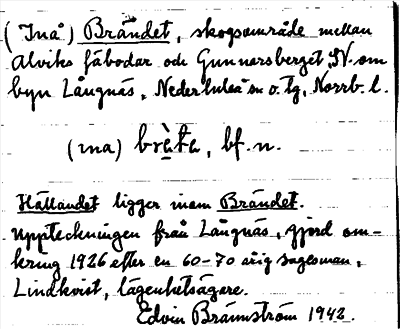 (Inå) Brändet, skogsområde mellan
Alviks fäbodar och Gunnarsberget, N. om
byn Långnäs, Nederluleå sn o. tg, Norrb. l.
(ina) bretə, bf. n.
Hällandet ligger inom Brändet.
Uppteckningen från Långnäs, gjord om-
kring 1926 efter en 60-70 årig sagesman,
Lindkvist, lägenhetsägare.
Edvin Brännström 1942.